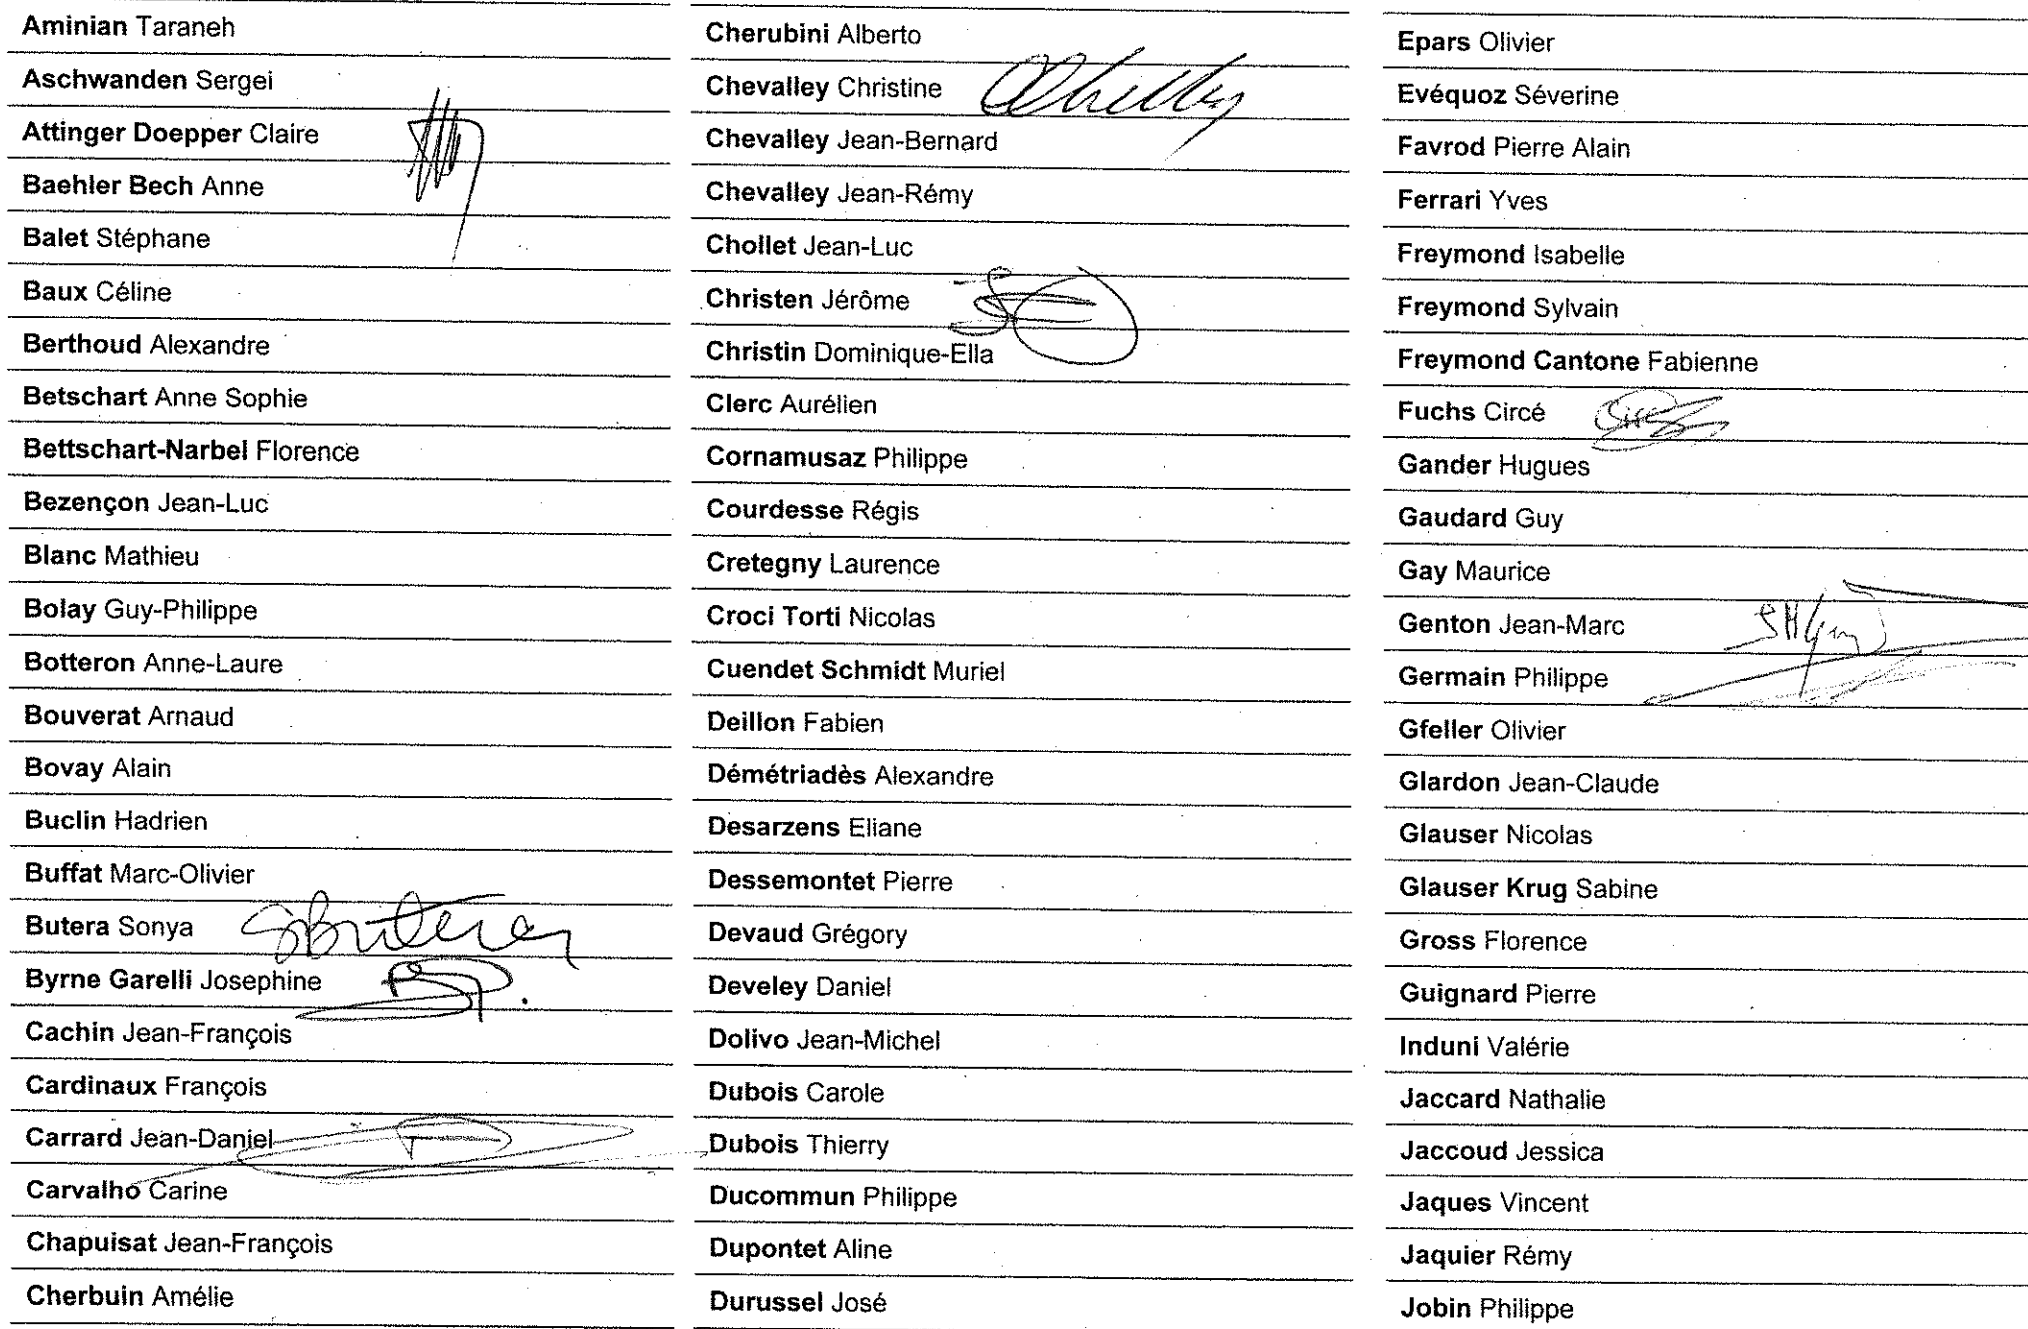 Aminian Taraneh
Aschwanden Sergei
Attinger Doepper Claire
Baehler Bech Anne
Balet Stéphane
Baux Céline
Berthoud Alexandre
Betschart Anne Sophie
Bettschart-Narbel Florence
Bezençon Jean-Luc
Blanc Mathieu
Bolay Guy-Philippe
Botteron Anne-Laure
Bouverat Arnaud
Bovay Alain
Buclin Hadrien
Buffat Marc-Olivier
Butera Sonya SButera
Byrne Garelli Josephine
Cachin Jean-François
Cardinaux François
Carrard Jean-Daniel
Carvalho Carine
Chapuisat Jean-François
Cherbuin Amélie
Cherubini Alberto
Chevalley Christine
Chevalley Jean-Bernard
Chevalley Jean-Rémy
Chollet Jean-Luc
Christen Jérôme
Christin Dominique-Ella
Clerc Aurélien
Cornamusaz Philippe
Courdesse Régis
Cretegny Laurence
Croci Torti Nicolas
Cuendet Schmidt Muriel
Deillon Fabien
Démétriadès Alexandre
Desarzens Eliane
Dessemontet Pierre
Devaud Grégory
Develey Daniel
Dolivo Jean-Michel
Dubois Carole
Dubois Thierry
Ducommun Philippe
Dupontet Aline
Durussel José
Epars Olivier
Evéquoz Séverine
Favrod Pierre Alain
Ferrari Yves
Freymond Isabelle
Freymond Sylvain
Freymond Cantone Fabienne
Fuchs Circé
Gander Hugues
Gaudard Guy
Gay Maurice
Genton Jean-Marc
Germain Philippe
Gfeller Olivier
Glardon Jean-Claude
Glauser Nicolas
Glauser Krug Sabine
Gross Florence
Guignard Pierre
Induni Valérie
Jaccard Nathalie
Jaccoud Jessica
Jaques Vincent
Jaquier Rémy
Jobin Philippe